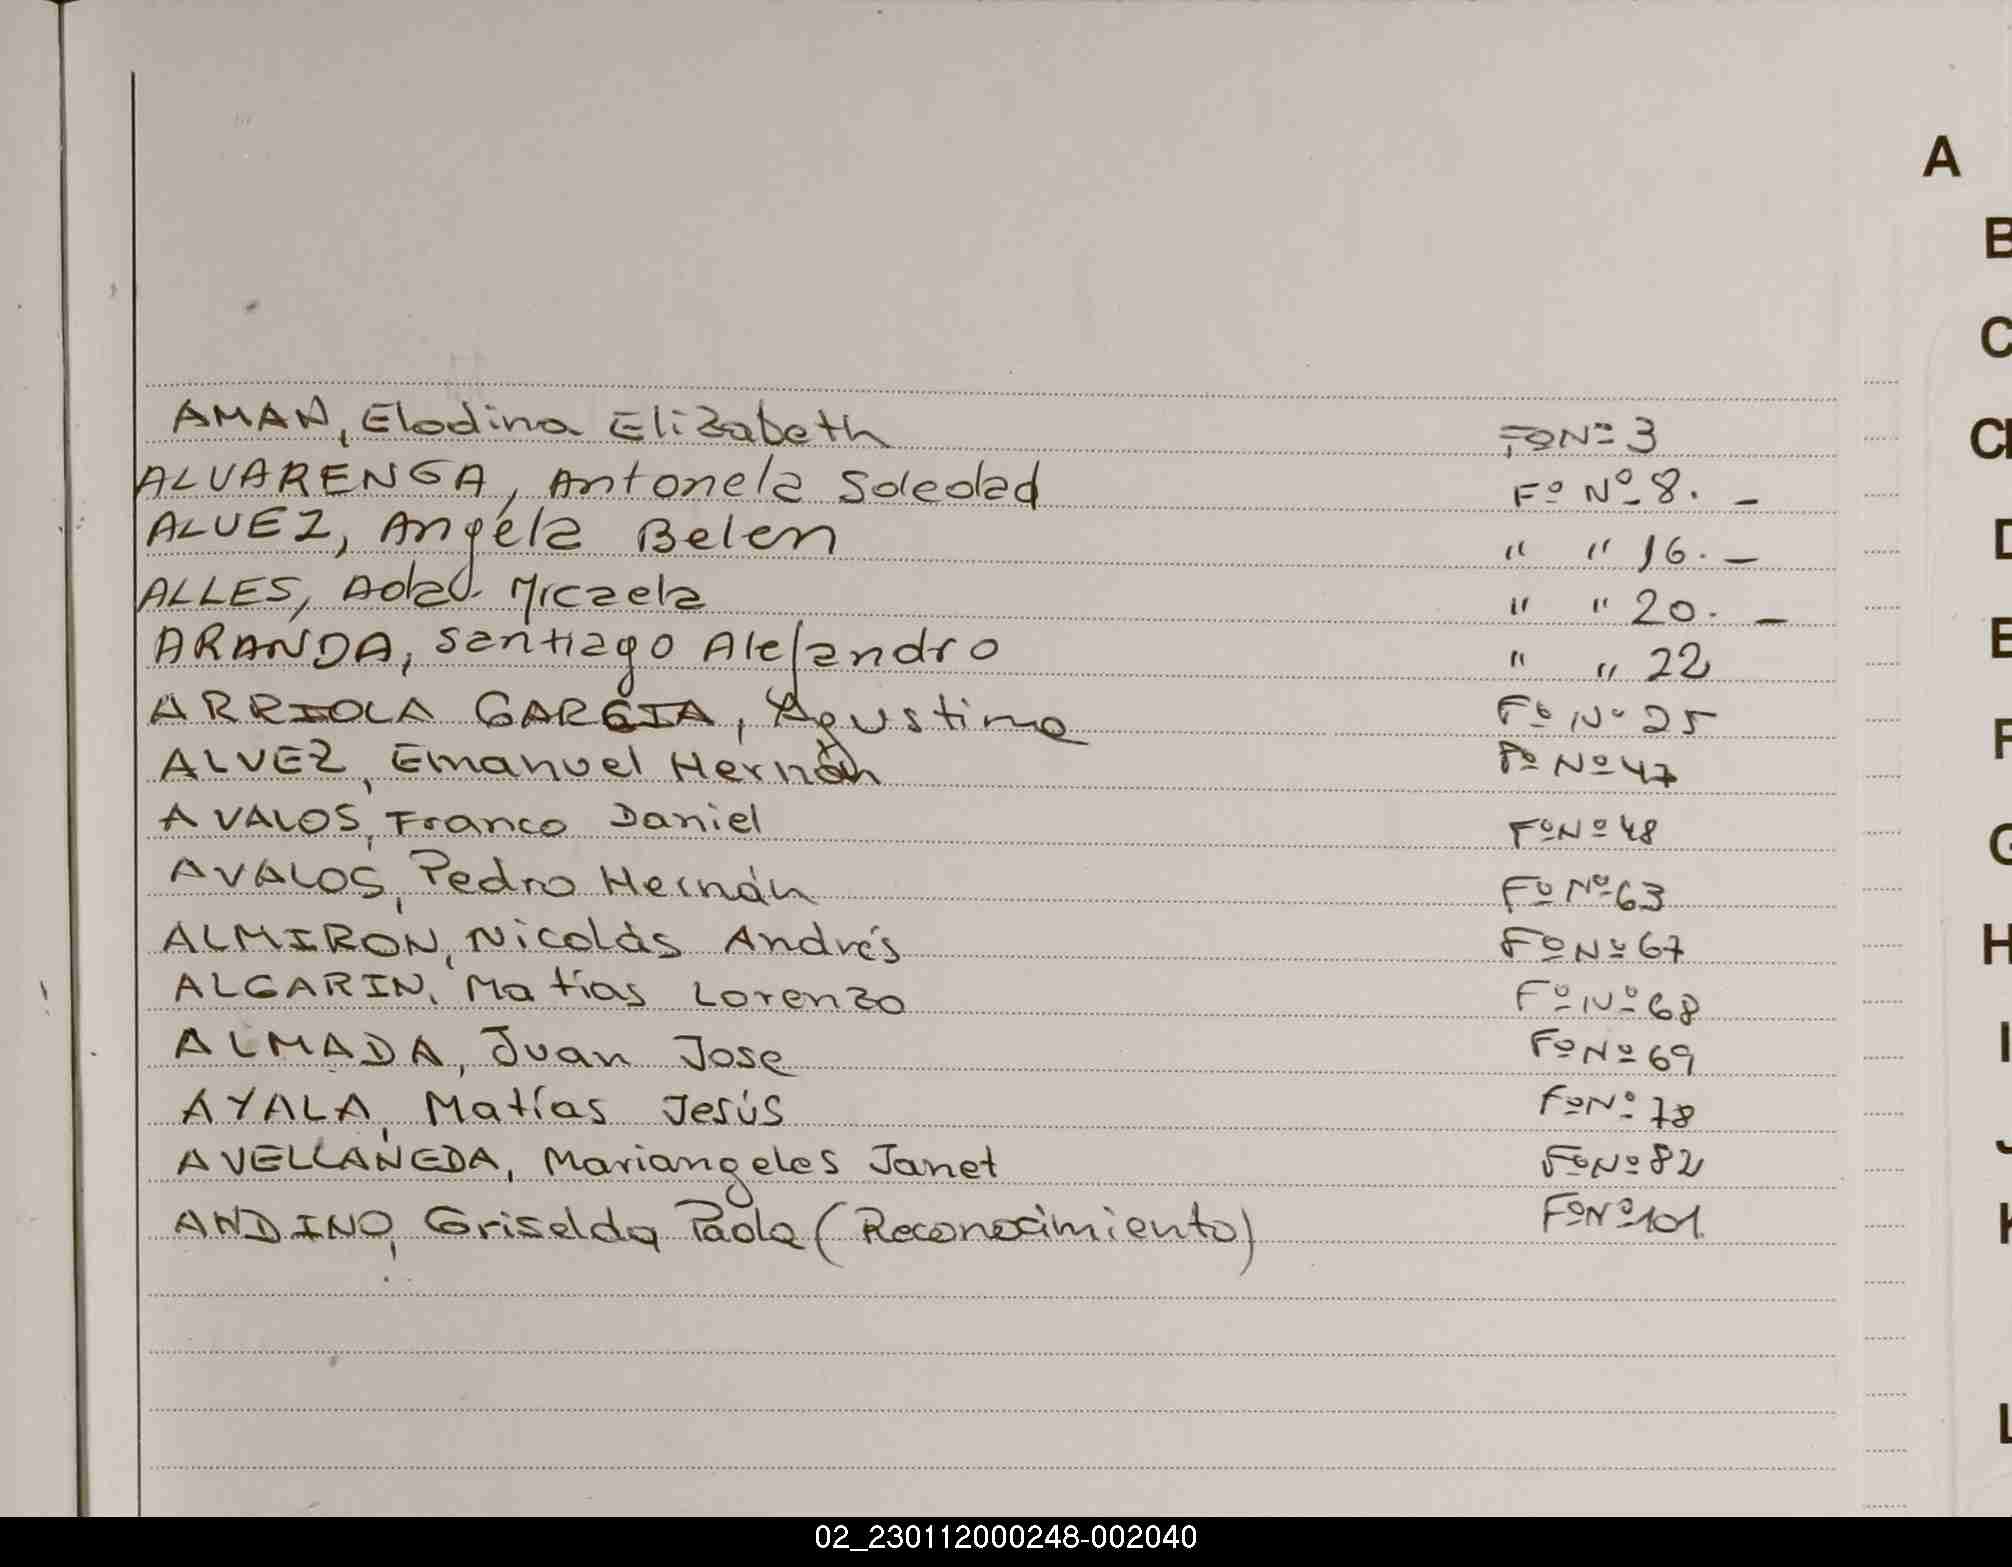 A
B
C
AMAN, Elodina Elizabeth FºNº 3
ALVARENGA, Antonela Soledad Fº Nº 8. -
ALVEZ, Angela Belen " " 16. -
ALLES, Micaela " " 20. -
ARANDA, Santiago Alejandro " " 22
ARRIOLA GARCIA, Agustina Fº Nº 25
ALVEZ, Emanuel Hernán Fº Nº 47
AVALOS, Franco Daniel FºNº 48
AVALOS, Pedro Hernán Fº Nº 63
ALMIRON, Nicolás Andrés Fº Nº 67
ALGARIN, Matías Lorenzo Fº Nº 68
ALMADA, Juan Jose Fº Nº 69
AYALA, Matías Jesús FºNº 78
AVELLANEDA, Mariangeles Janet FºNº 82
ANDINO, Griselda Paola (Reconocimiento) FºNº 101
D
E
F
G
H
I
J
K
L
02_230112000248-002040